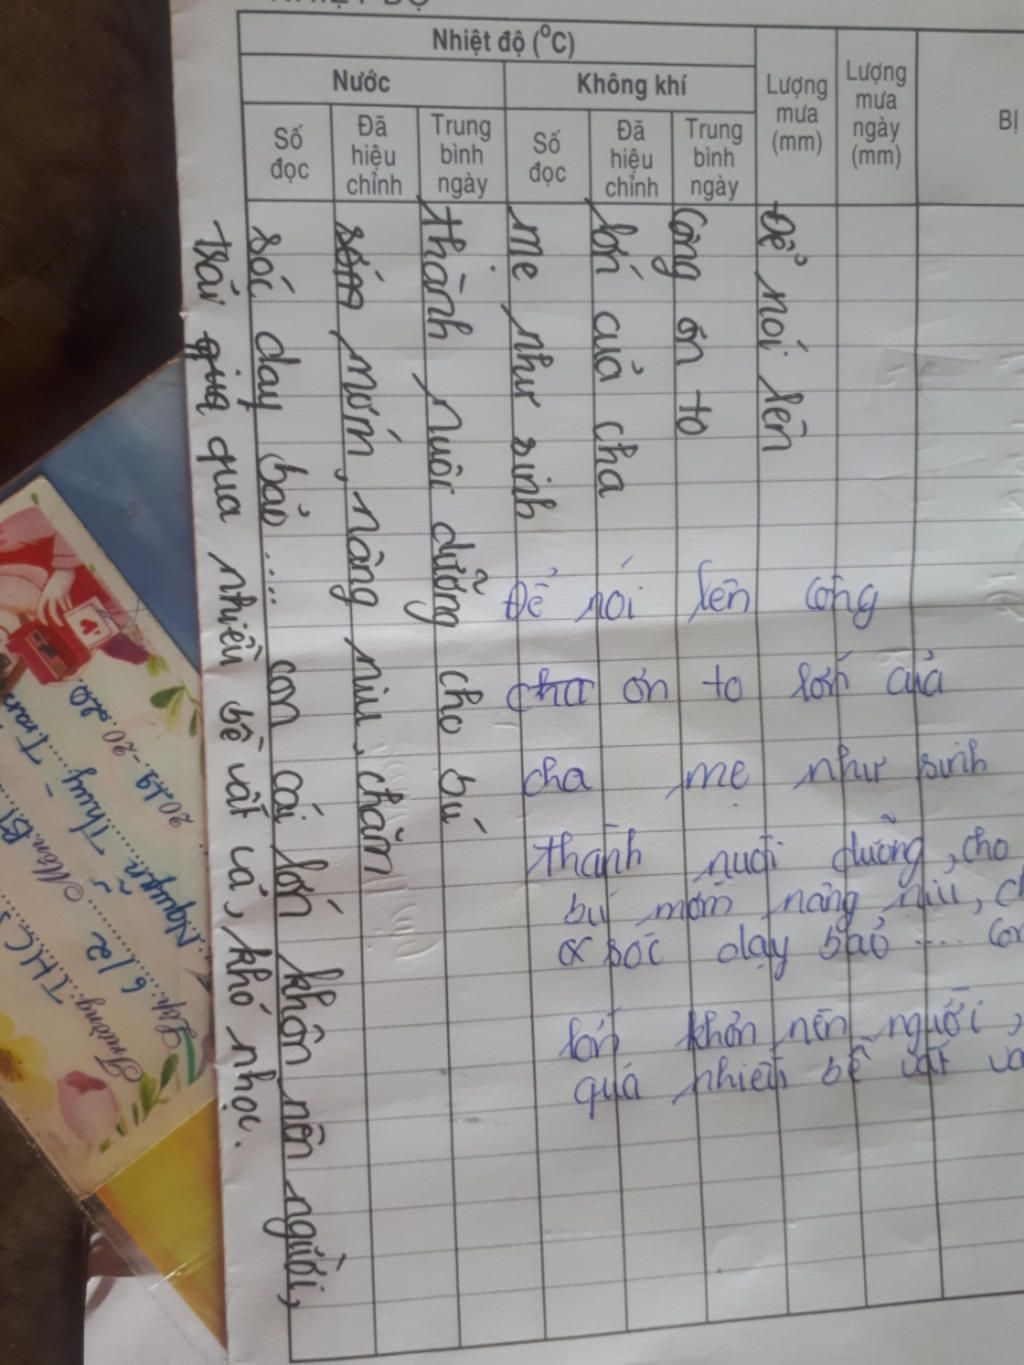 Nhiệt độ (°C)
Nước
Không khí
Lượng mưa (mm)
Lượng mưa ngày (mm)
BỊ
Số đọc
Đã hiệu chỉnh
Trung bình ngày
Số đọc
Đã hiệu chỉnh
Trung bình ngày
Để nói lên
công ơn to
lớn của cha
mẹ như sinh
thành nuôi dưỡng cho bú
mớm, nâng niu, chăm
sóc dạy bảo.... con cái lớn khôn nên người,
trải qua qua nhiều bề vất vả, khó nhọc.
Để nói lên công
cha ơn to lớn của
cha mẹ như sinh
thành nuôi dưỡng, cho
bú mớm nâng niu,
sóc dạy bảo ....
lớn khôn nên người,
quá nhiều bề vất
Trường: THCS
Lớp: 6/2 Môn:
Nguyễn Thùy Tran
2019-2020